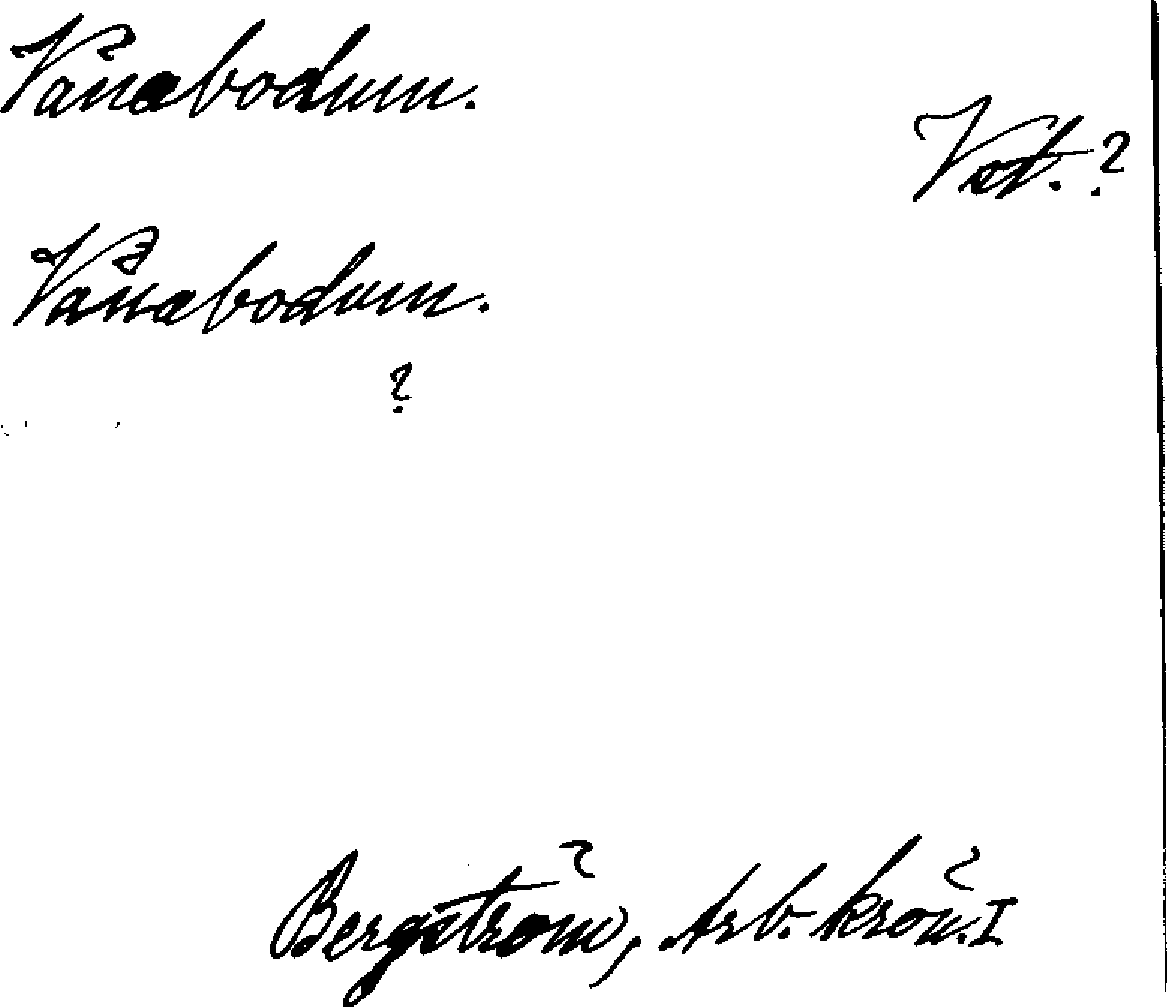 Vänæbodum.
Vst.?
Vänæbodum.
?
Bergström, Arb. krön. I